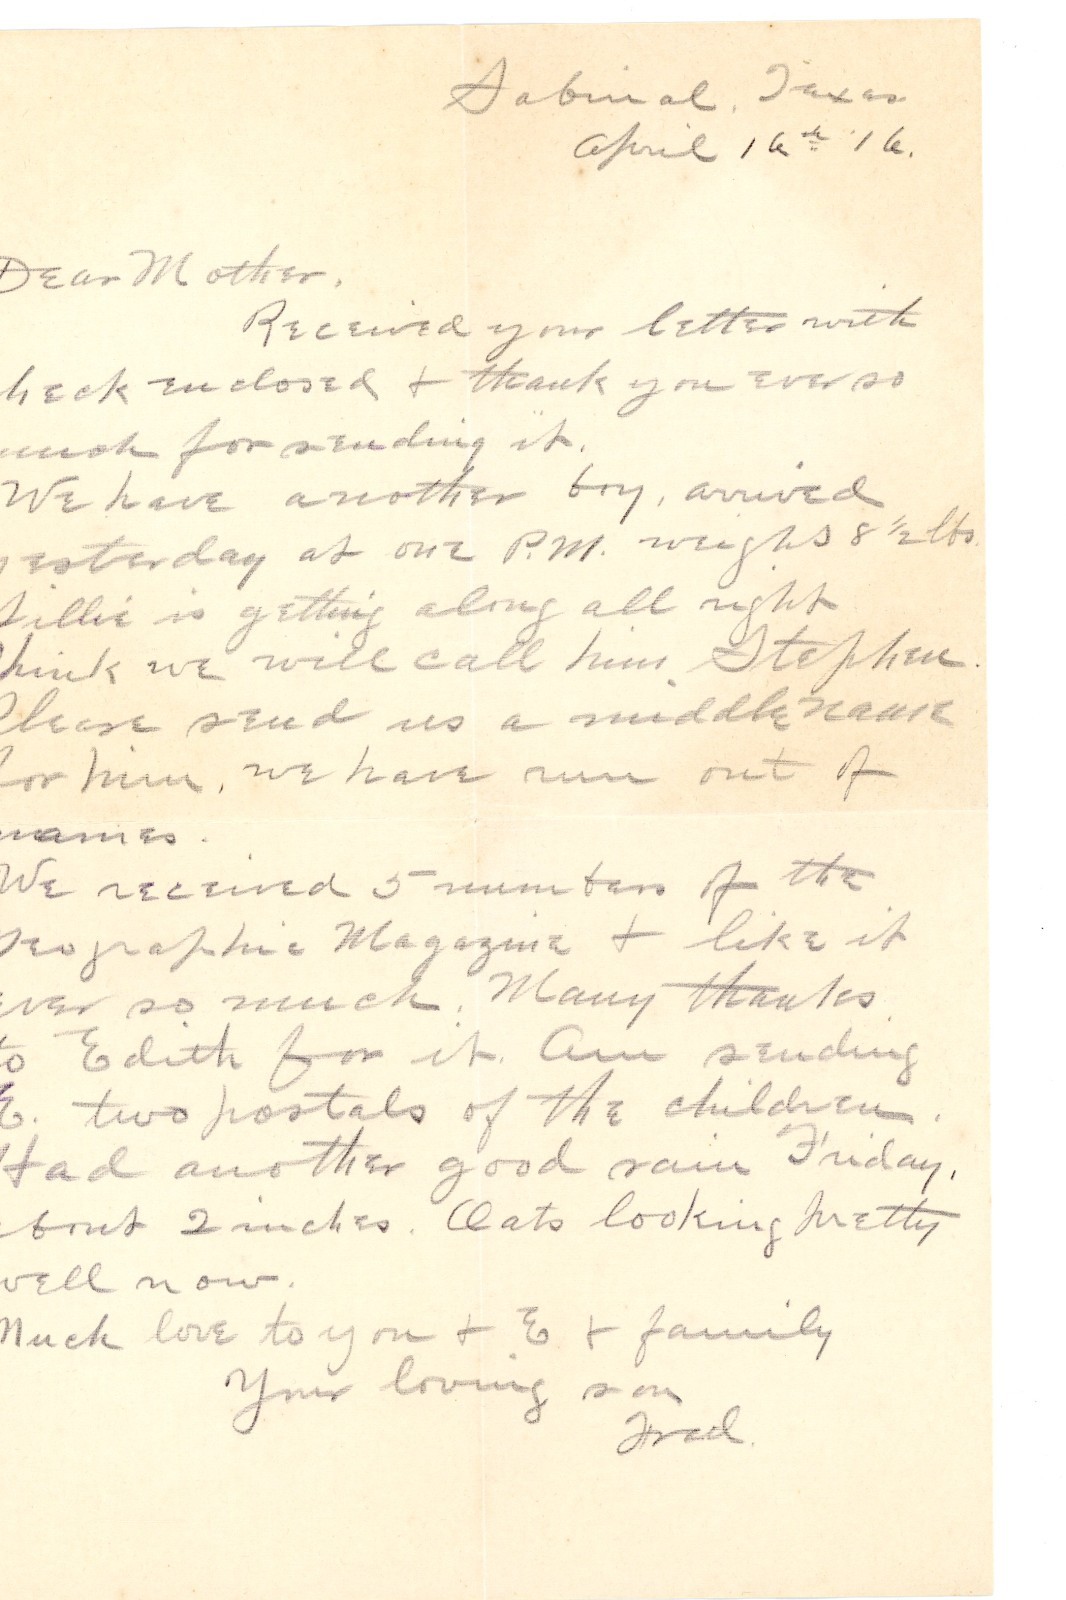 Sabinal, Texas
April 16th '16.
Dear Mother,
Received your letter with
heck enclosed + thank you ever so
much for sending it.
We have another boy, arrived
yesterday at one P.M. weighs 8 1/2 lbs.
Lillie is getting along all right
think we will call him Stephen.
Please send us a middle name
for him, we have run out of
names.
We received 5 numbers of the
Geographic Magazine + like it
ever so much. Many thanks
to Edith for it. Am sending
E. two postals of the children.
Had another good rain Friday,
about 2 inches. Oats looking pretty
well now.
Much love to you + E + family
Your loving son
Fred.